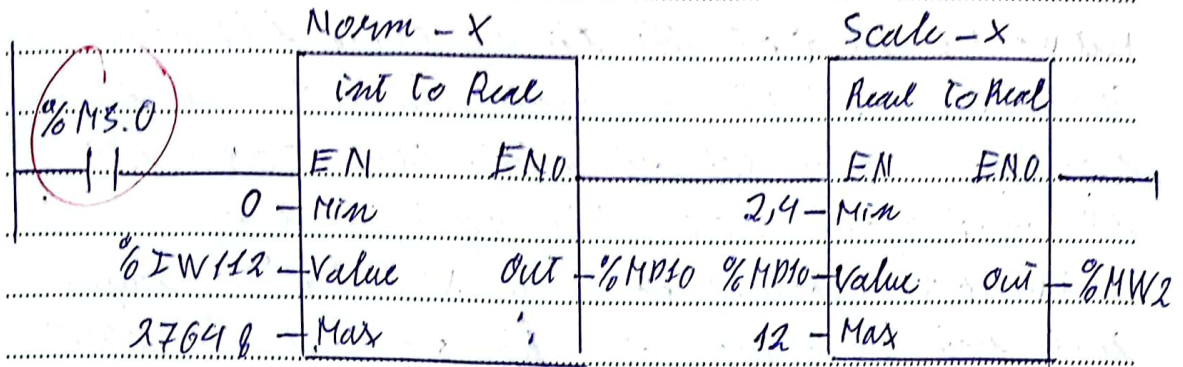 Norm - X Scale - X
int to Real Real to Real
%M3.0
EN ENO EN ENO
0 Min 2,4 Min
%IW112 Value Out %MD10 %MD10 Value Out %MW2
27648 Max 12 Max